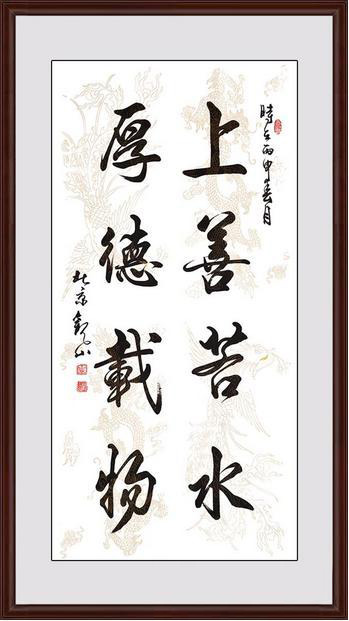 時在丙申春月
上善若水
厚德載物
北京山